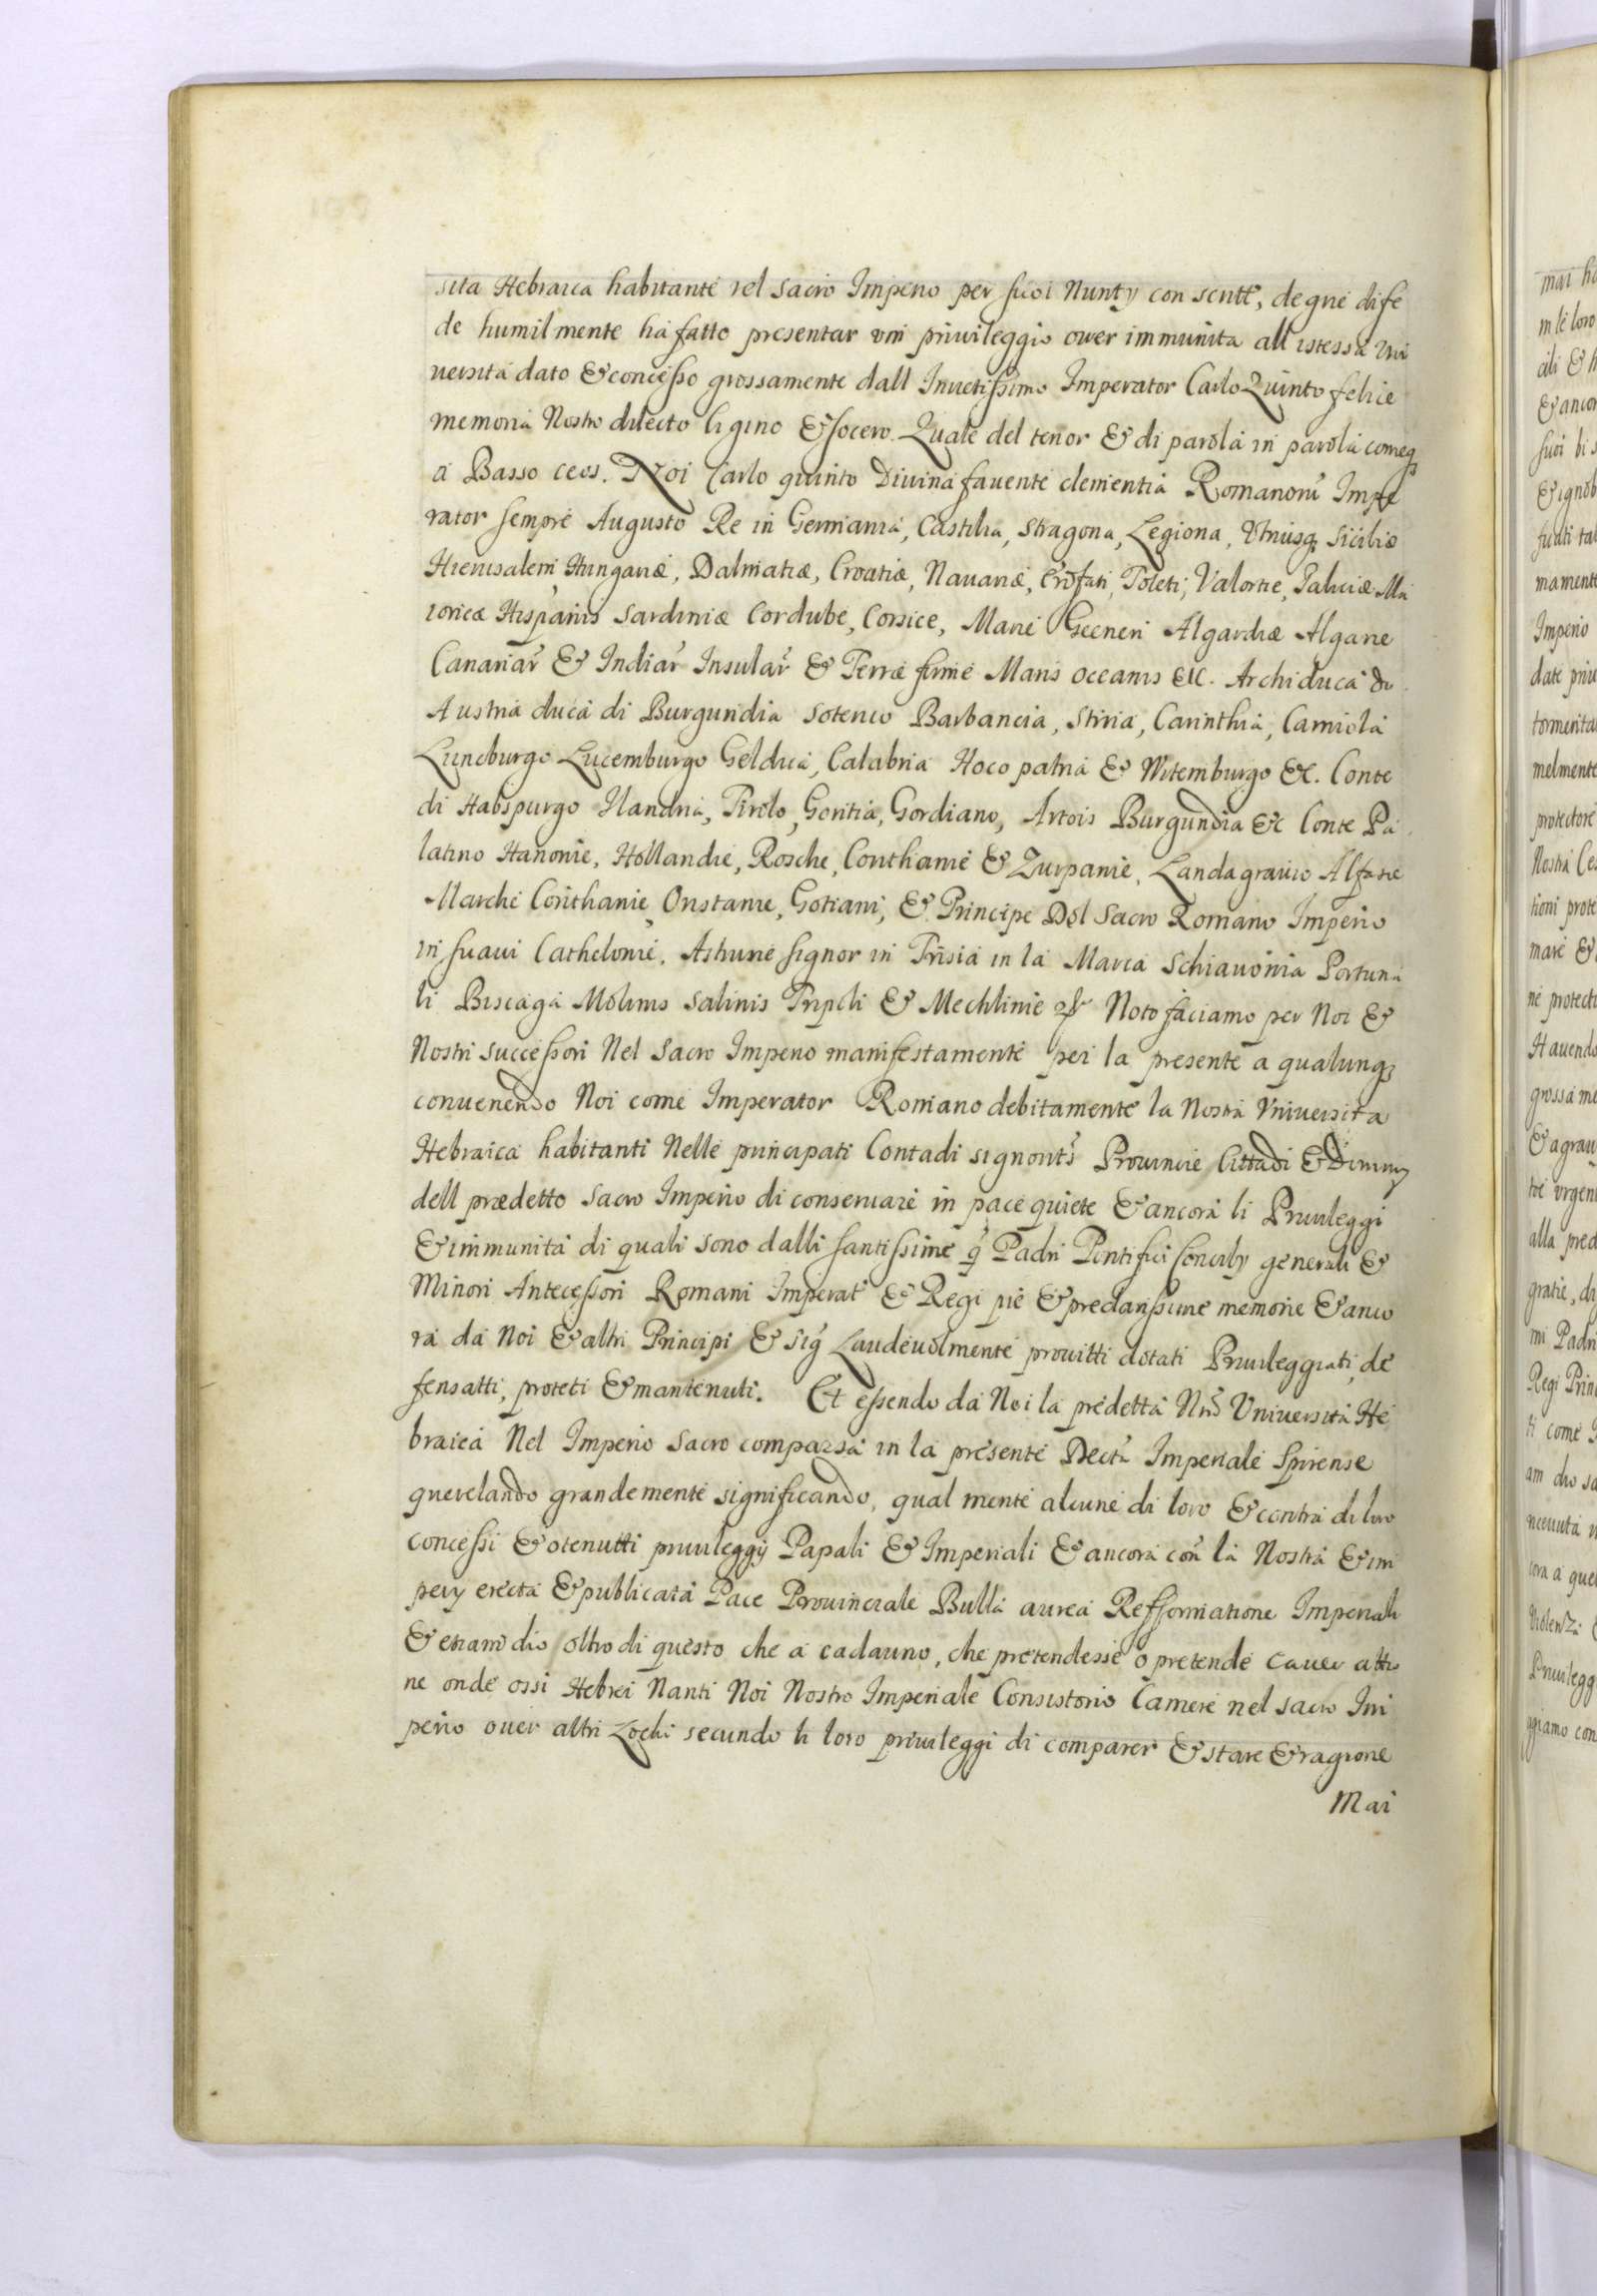 sita Hebraica habitante nel sacro Imperio per suoi Nuntÿ con scritt̃e, degne di fe
de humilmente ha fatto presentar un privileggio over immunita all istessa Uni
versita dato & concesso grossamente dall Invetissimo Imperator Carlo Quinto felice
memoria Nostro dilecto Cigino & socero. Quale del tenor & di parola in parola comeq
a Basso ceos. Noi Carlo quinto Divina favente clementia Romanorũ Impe
rator sempre Augusto Re in Germania, Castilia, Stragona, Legiona, Utriusq Siciliæ
Hierusalem Hungariæ, Dalmatiæ, Croatiæ, Navariæ, Toleti, Valortie, Galiciæ Ma
ioricæ Hispanis Sardiniæ Cordube, Corsice, Marie Geeneri Algardiæ Algarie
Canariar̃ & Indiar̃ Insular̃ & Terræ firme Maris Oceanis &c. Archiduca di
Austria duca di Burgundia Soterico Barbancia, Stiria, Carinthia, Carniola
Luneburgo Lucemburgo Geldria, Calabria Hoco patria & Witemburgo &c. Conte
di Habspurgo Ilandria, Tirolo, Goritia, Gordiano, Artois Burgundia &c Conte Pa
latino Hanonie, Hollandie, Rosche, Conthanie & Zurpanie, Landagravio Alfatie
Marche Corithanie, Onstanie, Gotiani, & Principe Del Sacro Romano Imperio
in suavi Cathelonie. Asturie signor in Frisia in la Marca Schiavonia Portuna
li Biscaga Molinis Salinis Tripoli & Mechlinie Noto faciamo per Noi &
Nostri successori Nel Sacro Imperio manifestamente per la presente a qualunq
convenendo Noi come Imperator Romano debitamente la Nostra Universita
Hebraica habitanti Nelle principati Contadi signorits Provincie Cittadi & Dominÿ
dell prædetto Sacro Imperio di conservare in pace quiete & ancora li Privileggi
& immunita di quali sono dalli santissime q̃ Padri Pontifici Concilÿ generali &
Minori Antecessori Romani Imperat̃ & Regi pie & preclarissime memorie & anco
ra da Noi & altri Principi & Sig̃ Laudevolmente provitti dotati Privileggiati, de
fensatti, proteti & mantenuti. Et essendo da Noi la predetta Nrã Università He
braica Nel Imperio Sacro comparsa in la presente Diectã Imperiale Spirense
querelando grandemente significando, qual mente alcune di loro & contra di loro
concessi & otenutti privileggij Papali & Imperiali & ancora con la Nostra & im
perÿ erecta & publicata Pace Provinciale Bulla aurea Refformatione Imperiali
& etiam dio oltro di questo che a cadauno, che pretendesse o pretende caver attio
ne onde ossi Hebrei Nanti Noi Nostro Imperiale Consistorio Camere nel sacro Im
perio over altri Lochi secundo li loro privileggi di comparer & stare & ragione
Mai